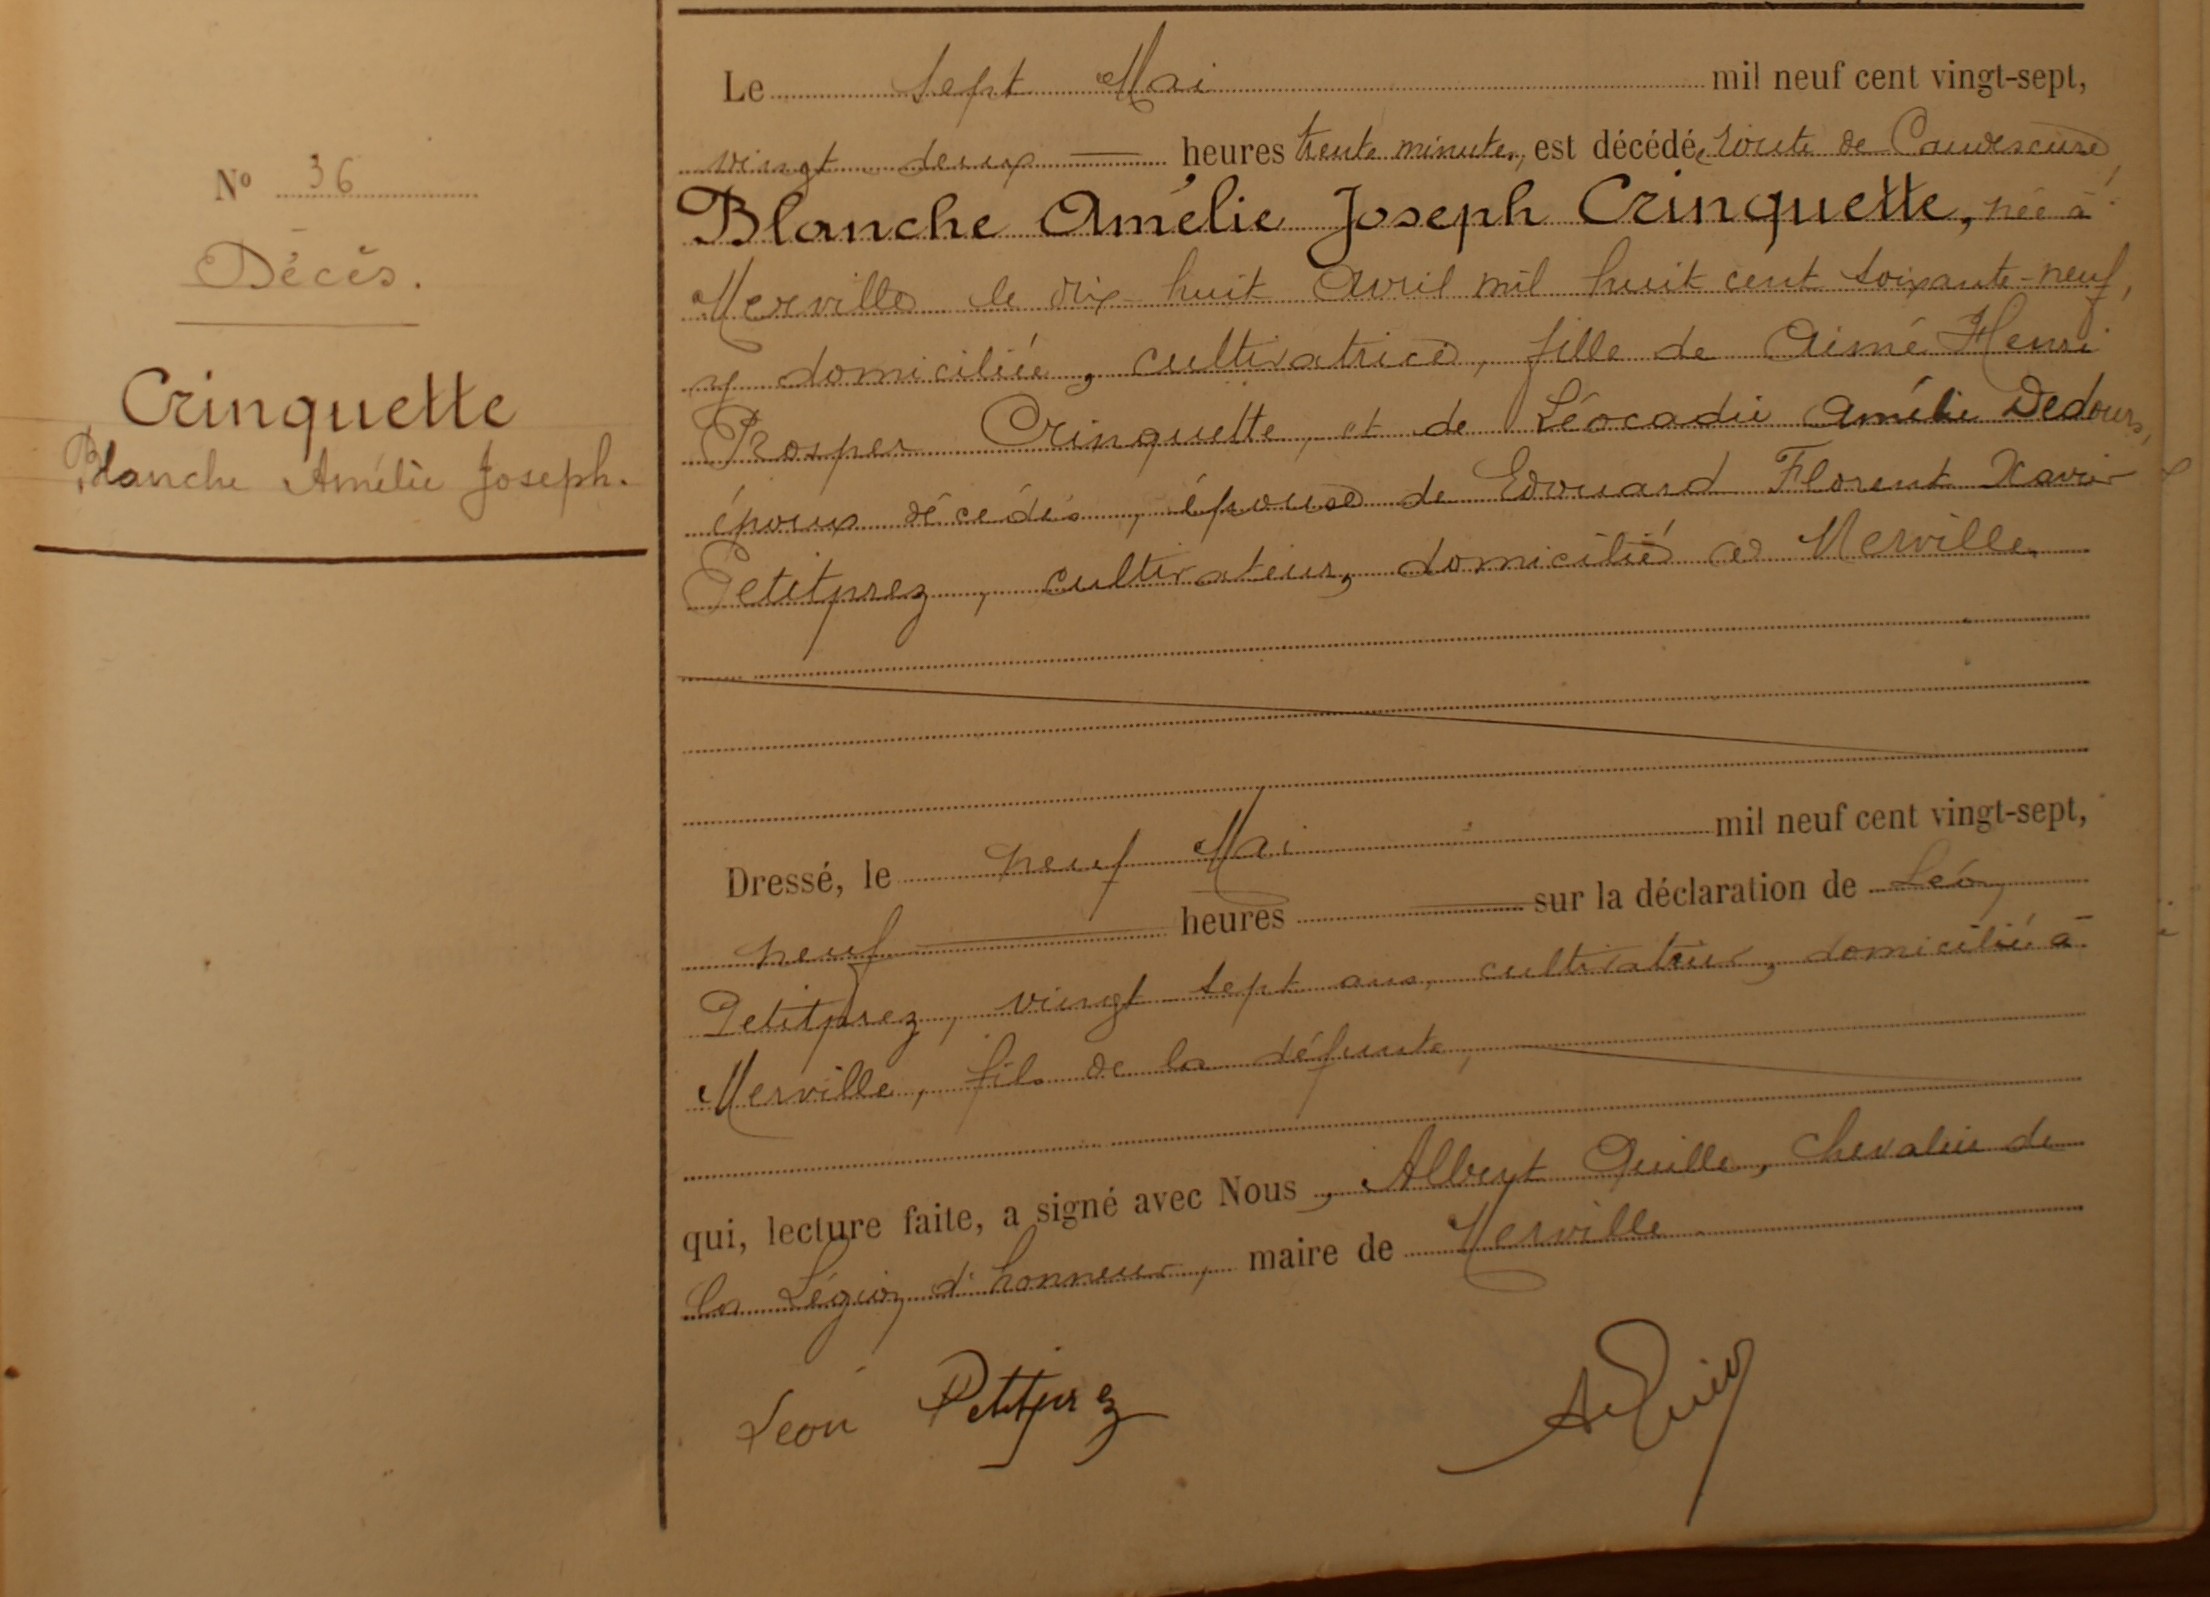 N° 36
Décès.
Crinquette
Blanche Amélie Joseph.
Le sept Mai mil neuf cent vingt-sept,
vingt deux heures trente minutes, est décédée, route de Caudescure,
Blanche Amélie Joseph Crinquette, née à
Merville le dix-huit Avril mil huit cent soixante-neuf,
y domiciliée, cultivatrice, fille de Aimé Henri
Prosper Crinquette, et de Léocadie Amélie Dedours,
époux décédés, épouse de Edouard Florent Xavier
Petitprez, cultivateur, domicilié à Merville.
Dressé, le neuf Mai mil neuf cent vingt-sept,
neuf heures sur la déclaration de Léon
Petitprez, vingt-sept ans, cultivateur, domicilié à
Merville, fils de la défunte,
qui, lecture faite, a signé avec Nous, Albert Quille, Chevalier de
la Légion d'honneur, maire de Merville
Léon Petitprez